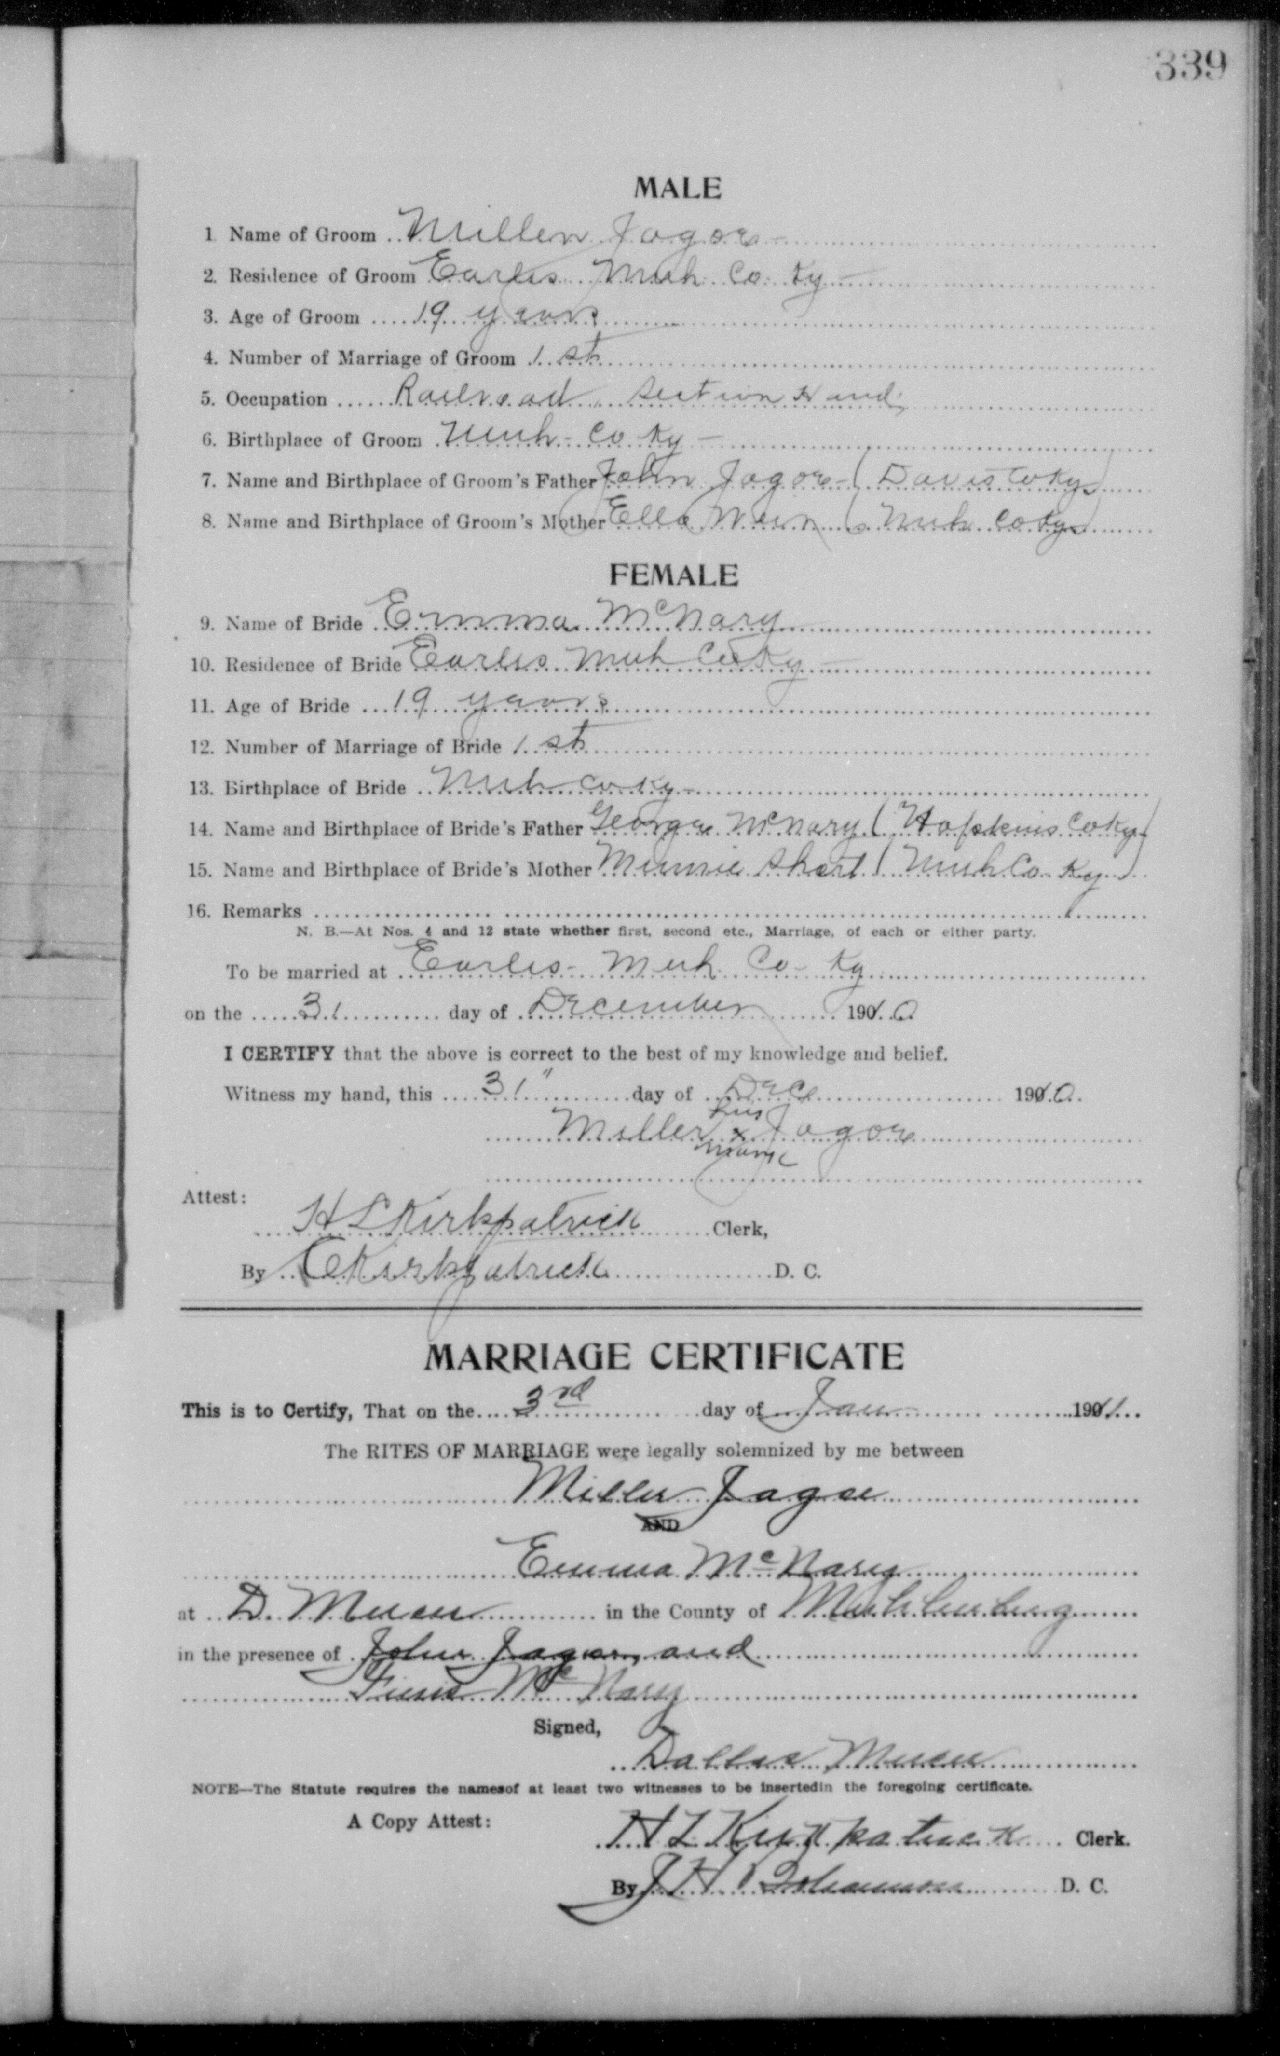 339
MALE
1 Name of Groom Miller Jagoe
2. Residence of Groom Earles Muh. Co. Ky
3. Age of Groom 19 years
4. Number of Marriage of Groom 1st
5. Occupation Railroad Section Hand
6. Birthplace of Groom Muh. Co Ky
7. Name and Birthplace of Groom's Father John Jagoe (Davis Co Ky)
8. Name and Birthplace of Groom's Mother Ella (Muh Co Ky)
FEMALE
9. Name of Bride Emma McNary
10. Residence of Bride Earles Muh Co Ky
11. Age of Bride 19 years
12. Number of Marriage of Bride 1st
13. Birthplace of Bride Muh Co Ky
14. Name and Birthplace of Bride's Father George McNary (Hopkins Co Ky)
15. Name and Birthplace of Bride's Mother Minnie Short (Muh Co Ky)
16. Remarks
N. B.—At Nos. 4 and 12 state whether first, second etc., Marriage, of each or either party.
To be married at Earles - Muh. Co - Ky
on the 31 day of December 1910
I CERTIFY that the above is correct to the best of my knowledge and belief.
Witness my hand, this 31" day of Dec 1910
his
Miller x Jagoe
mark
Attest:
H L Kirkpatrick Clerk,
By C Kirkpatrick D. C.
MARRIAGE CERTIFICATE
This is to Certify, That on the 3rd day of Jan 1911
The RITES OF MARRIAGE were legally solemnized by me between
Miller Jagoe
AND
Emma McNary
at D. in the County of Muhlenberg
in the presence of John Jagoe and
McNary
Signed,
Dallas
NOTE—The Statute requires the namesof at least two witnesses to be insertedin the foregoing certificate.
A Copy Attest:
H L Kirkpatrick Clerk.
By J H D. C.